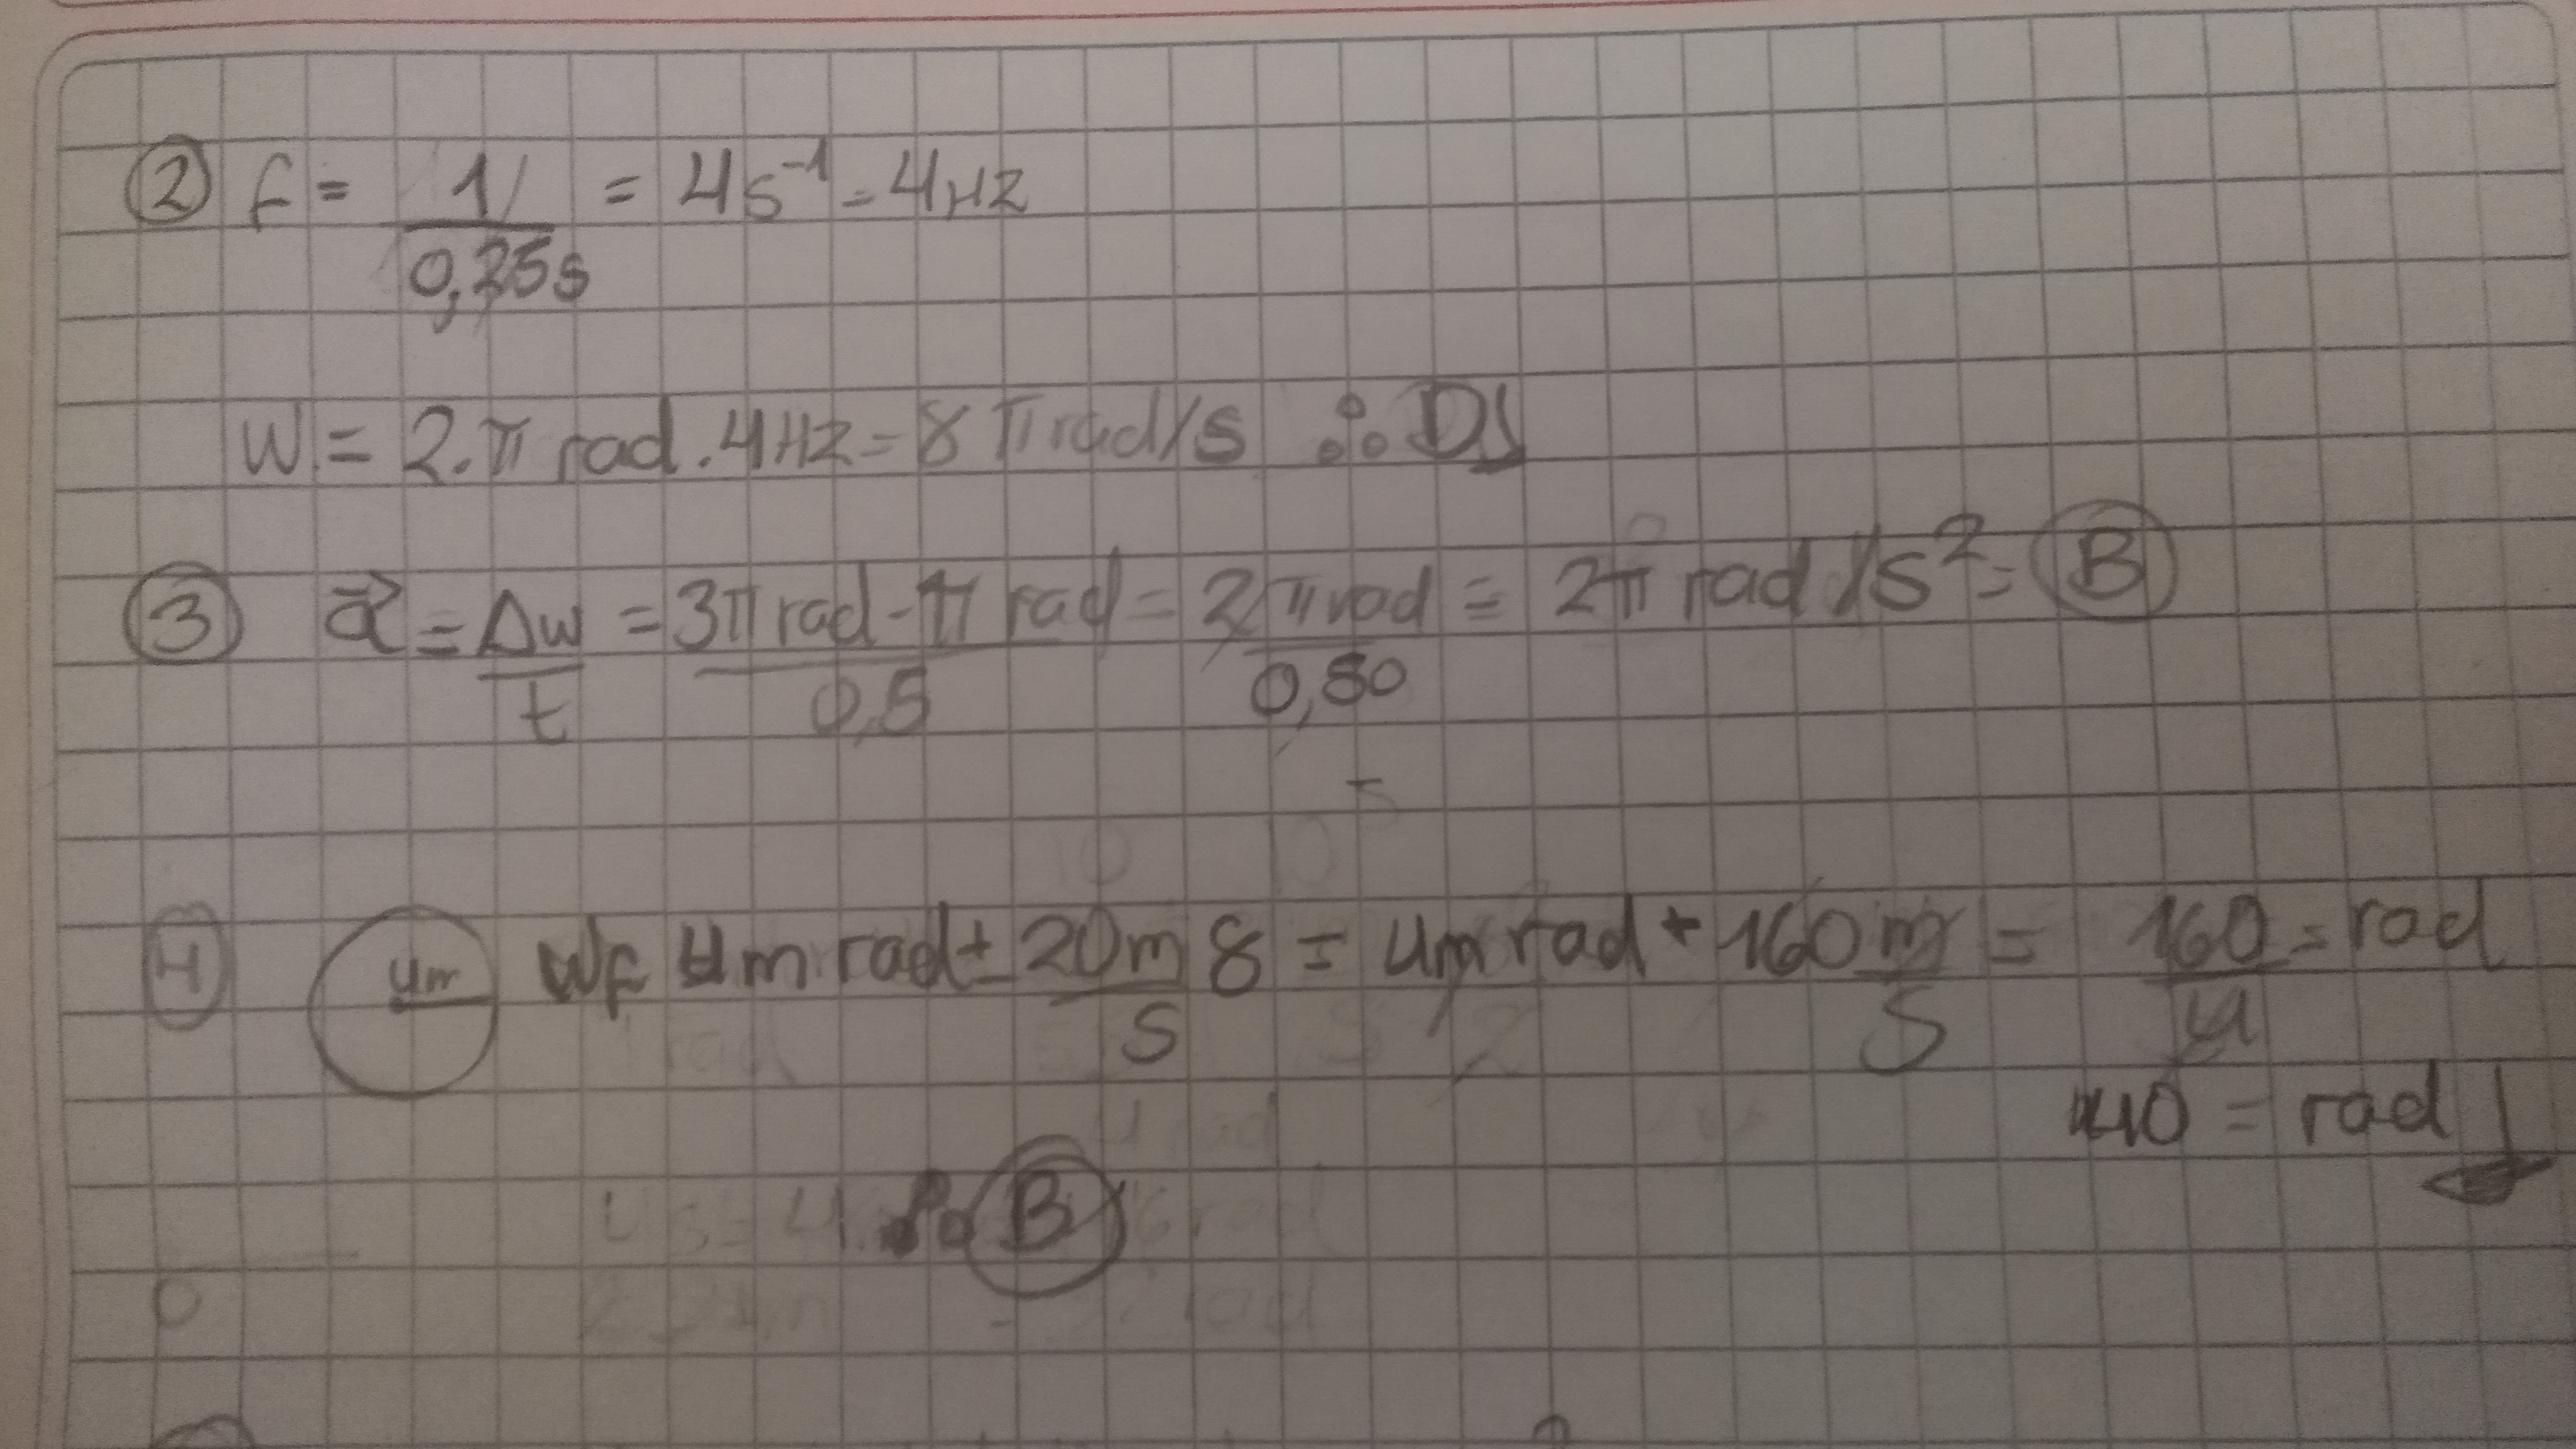 ② f = 1/0,25s = 4s⁻¹ = 4Hz
W = 2.π rad . 4Hz = 8 π rad/s ∴ D
③ α⃗ = Δw/t = 3π rad - π rad/0,5 = 2 π rad/0,50 = 2π rad /s² = B
④ 4m Wf 4m rad + 20m/s 8 = 4m rad + 160 m/s = 160/4 = rad
40 = rad
∴ B